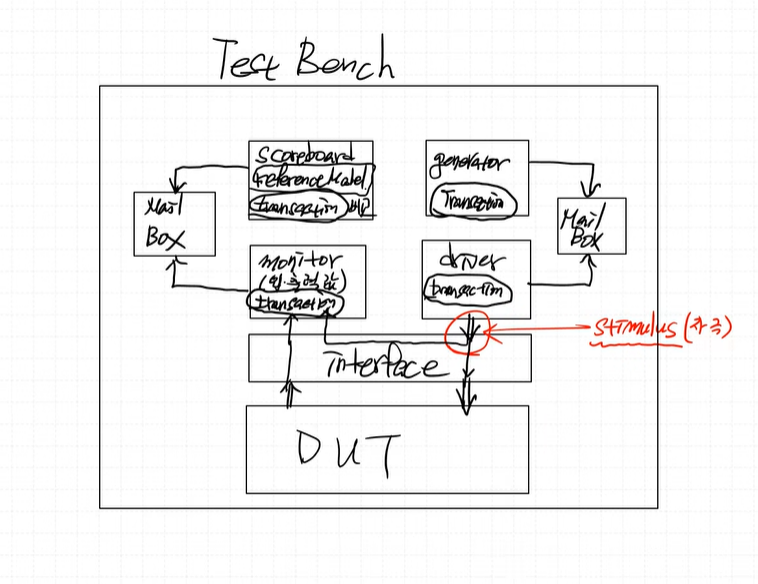 Test Bench
scoreboard
reference Model
transaction 비교
generator
Transaction
Mail
Box
Mail
Box
monitor
(입·출력 값)
transaction
driver
transaction
stimulus (자극)
interface
DUT